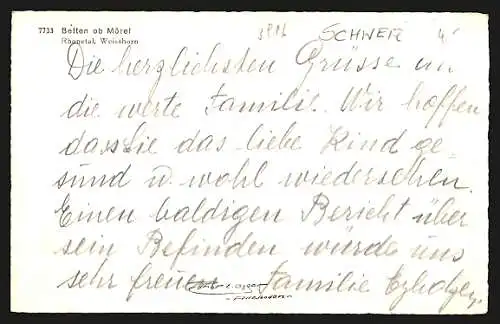 7733 Betten ob Mörel
Rhonetal, Weisshorn
SCHWEIZ
Die herzlichsten Grüsse an
die werte Familie. Wir hoffen
dass Sie das liebe Kind ge=
sund u. wohl wiedersehen.
Einen baldigen Bericht über
sein Befinden würde uns
sehr freuen Familie